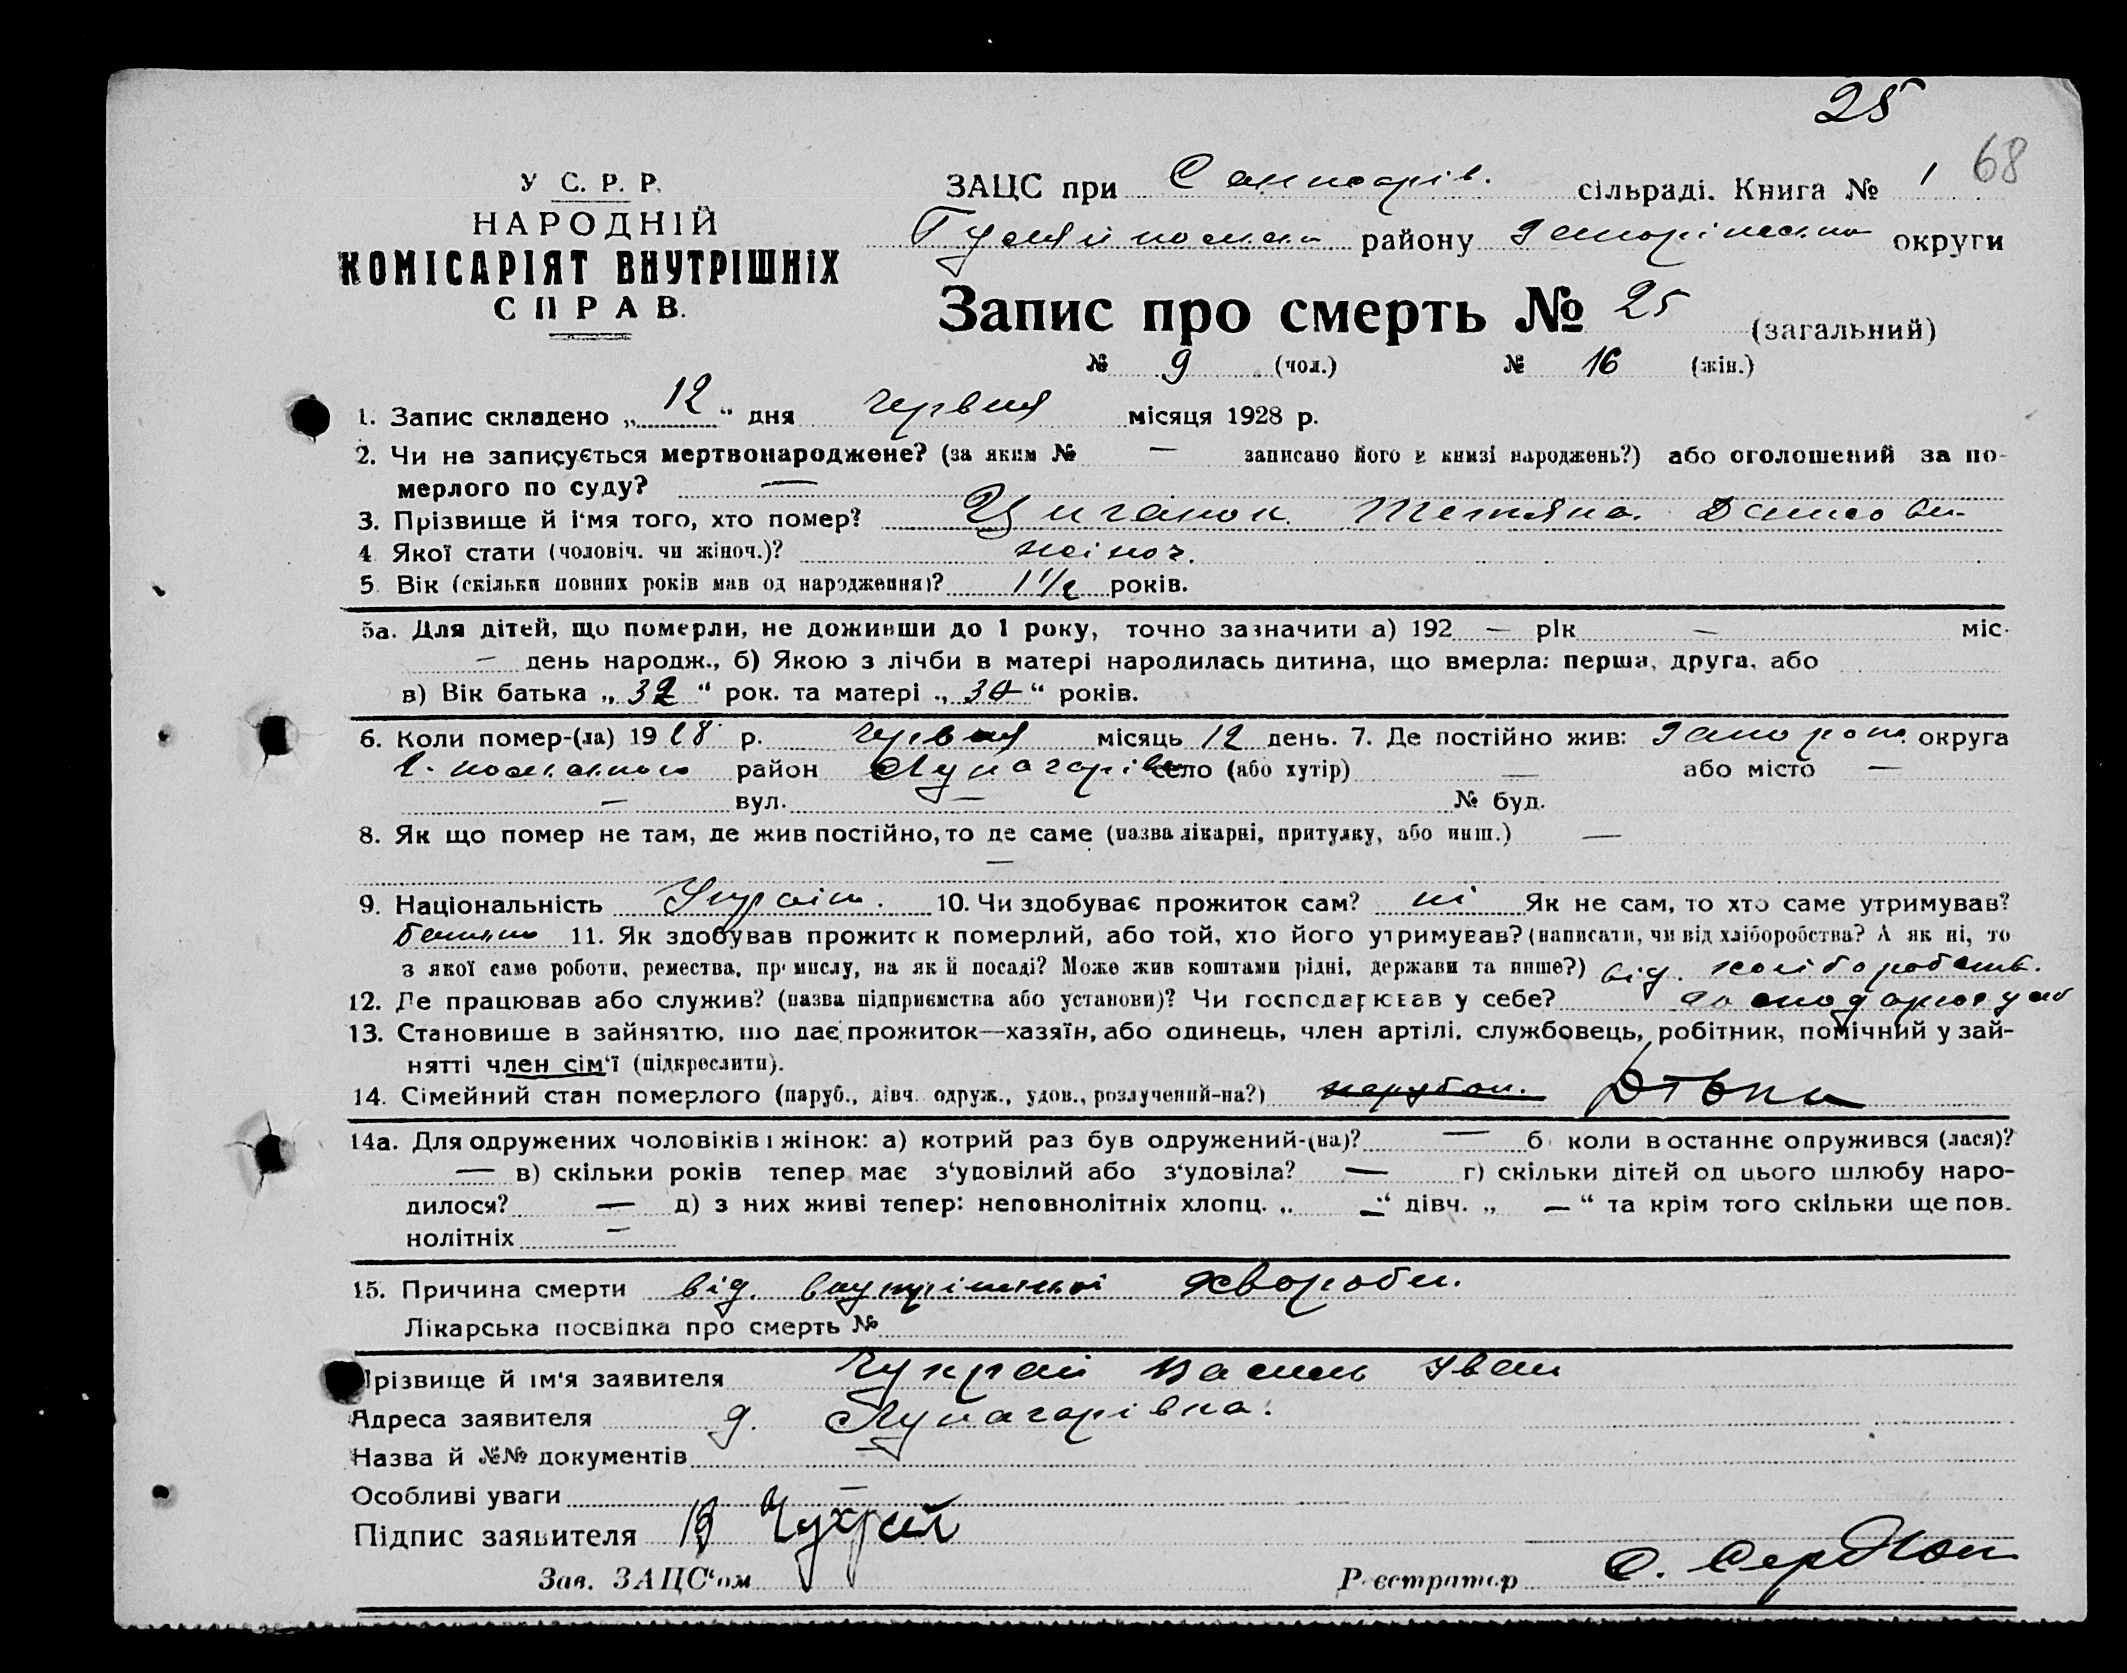 25
68
У С. Р. Р.
НАРОДНІЙ
КОМІСАРІЯТ ВНУТРІШНІХ
СПРАВ.
ЗАЦС при сільраді. Книга № 1
району округи
Запис про смерть № 25 (загальний)
№ 9 (чол.) № 16 (жін.)
1. Запис складено „ 12 “ дня червня місяця 1928 р.
2. Чи не записується мертвонароджене? (за яким № — записано його в книзі народжень?) або оголошений за по-
мерлого по суду? —
3. Прізвище й ім'я того, хто помер? Циганок Тетяна
4 Якої стати (чоловіч. чи жіноч.)? жіноч.
5. Вік (скільки повних років мав од народження)? 1 1/2 років.
5а. Для дітей, що померли, не доживши до 1 року, точно зазначити а) 192 — рік — міс.
— день народж., б) Якою з лічби в матері народилась дитина, що вмерла: перша, друга, або
в) Вік батька „ 32 “ рок. та матері „ 30 “ років.
6. Коли помер-(ла) 19 28 р. червня місяць 12 день. 7. Де постійно жив: Запоріж. округа
район село (або хутір) — або місто —
— вул. — № буд.
8. Як що помер не там, де жив постійно, то де саме (назва лікарні, притулку, або инш.) —
—
9. Національність Україн. 10. Чи здобуває прожиток сам? ні Як не сам, то хто саме утримував?
батько 11. Як здобував прожиток померлий, або той, хто його утримував? (написати, чи від хліборобства? А як ні, то
з якої саме роботи, ремества, промислу, на якій посаді? Може жив коштами рідні, держави та инше?) від хліборобств.
12. Де працював або служив? (назва підприємства або установи)? Чи господарював у себе?
13. Становише в зайняттю, що дає прожиток—хазяїн, або одинець, член артілі, службовець, робітник, помічний у зай-
нятті член сім'ї (підкреслити).
14. Сімейний стан померлого (паруб., дівч. одруж., удов., розлучений-на?) парубок. Дѣвка
14а. Для одружених чоловіків і жінок: а) котрий раз був одружений-(на)? — б коли востаннє одружився (лася)?
— в) скільки років тепер має з'удовілий або з'удовіла? — г) скільки дітей од цього шлюбу наро-
дилося? — д) з них живі тепер: неповнолітніх хлопц. „ — “ дівч. „ — “ та крім того скільки ще пов.
нолітніх —
15. Причина смерти від внутрішньої хвороби.
Лікарська посвідка про смерть №
Прізвище й ім'я заявителя Чухрай Василь Іван
Адреса заявителя д.
Назва й №№ документів —
Особливі уваги —
Підпис заявителя В Чухрай
Зав. ЗАЦС'ом
Реєстратор